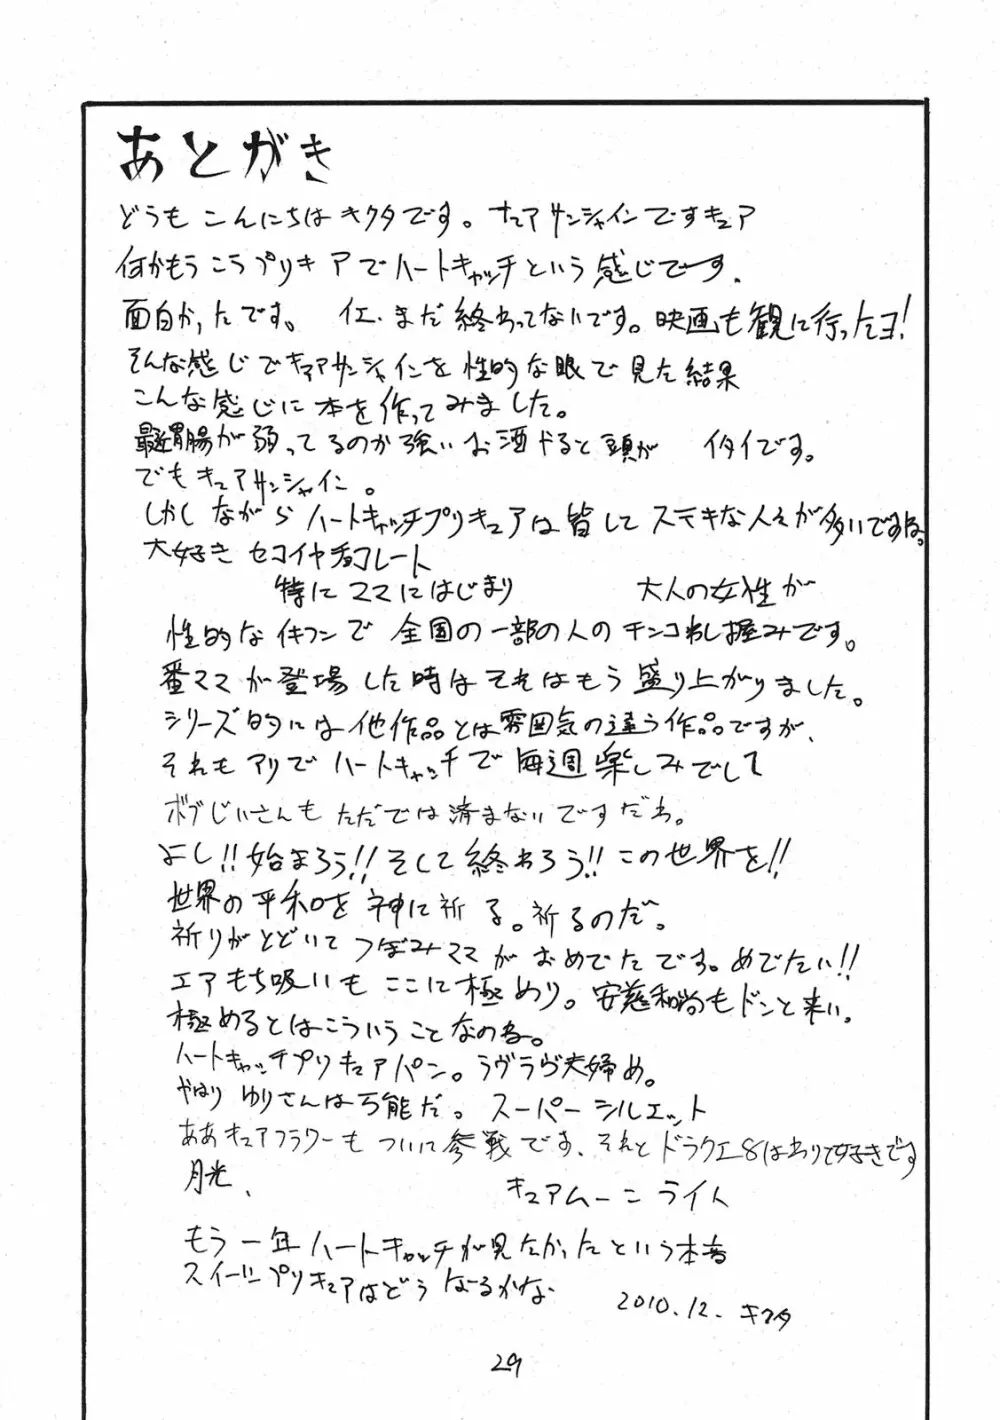 あとがき
どうも こんにちは キクタです。 キュアサンシャインですキュア
何かもう こうプリキュアでハートキャッチという感じです.
面白かったです。 イエ. まだ終わってないです。映画も観に行ったヨ!
そんな感じでキュアサンシャインを性的な眼で見た結果
こんな感じに本を作ってみました。
最近胃腸が弱ってるのか強いお酒やると頭が イタイです。
でもキュアサンシャイン。
しかしながらハートキャッチプリキュアは皆してステキな人々が多いですね。
大好き セコイヤチョコレート
特にママにはじまり 大人の女性が
性的なイキフンで 全国の一部の人のチンコわし握みです。
番ママが登場した時はそれはもう盛り上がりました。
シリーズ的には他作品とは雰囲気の違う作品ですが、
それもアリで ハートキャッチで毎週楽しみでして
ボブじいさんも ただでは済まないですだわ。
よし!!始まろう!!そして終わろう!!この世界を!!
世界の平和を神に祈る。祈るのだ。
祈りがとどいて つぼみママが おめでたです。めでたい!!
エアもち吸いも ここに極めり。安慈和尚もドンと来い。
極めるとはこういうことなのね。
ハートキャッチプリキュアパン。ラヴラヴ夫婦め。
やはり ゆりさんは万能だ。 スーパーシルエット
ああキュアフラワーも ついに参戦です. それとドラクエ8はわりて好きです
月光、 キュアムーンライト
もう一年ハートキャッチが見たかったという本音
スイーツプリキュアはどうなるかな
2010.12. キクタ
29